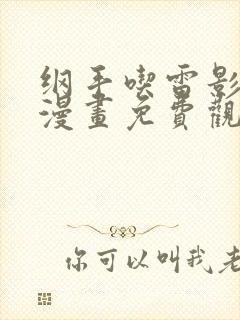 纲手喫雷影
漫畫免費觀
你可以叫我老